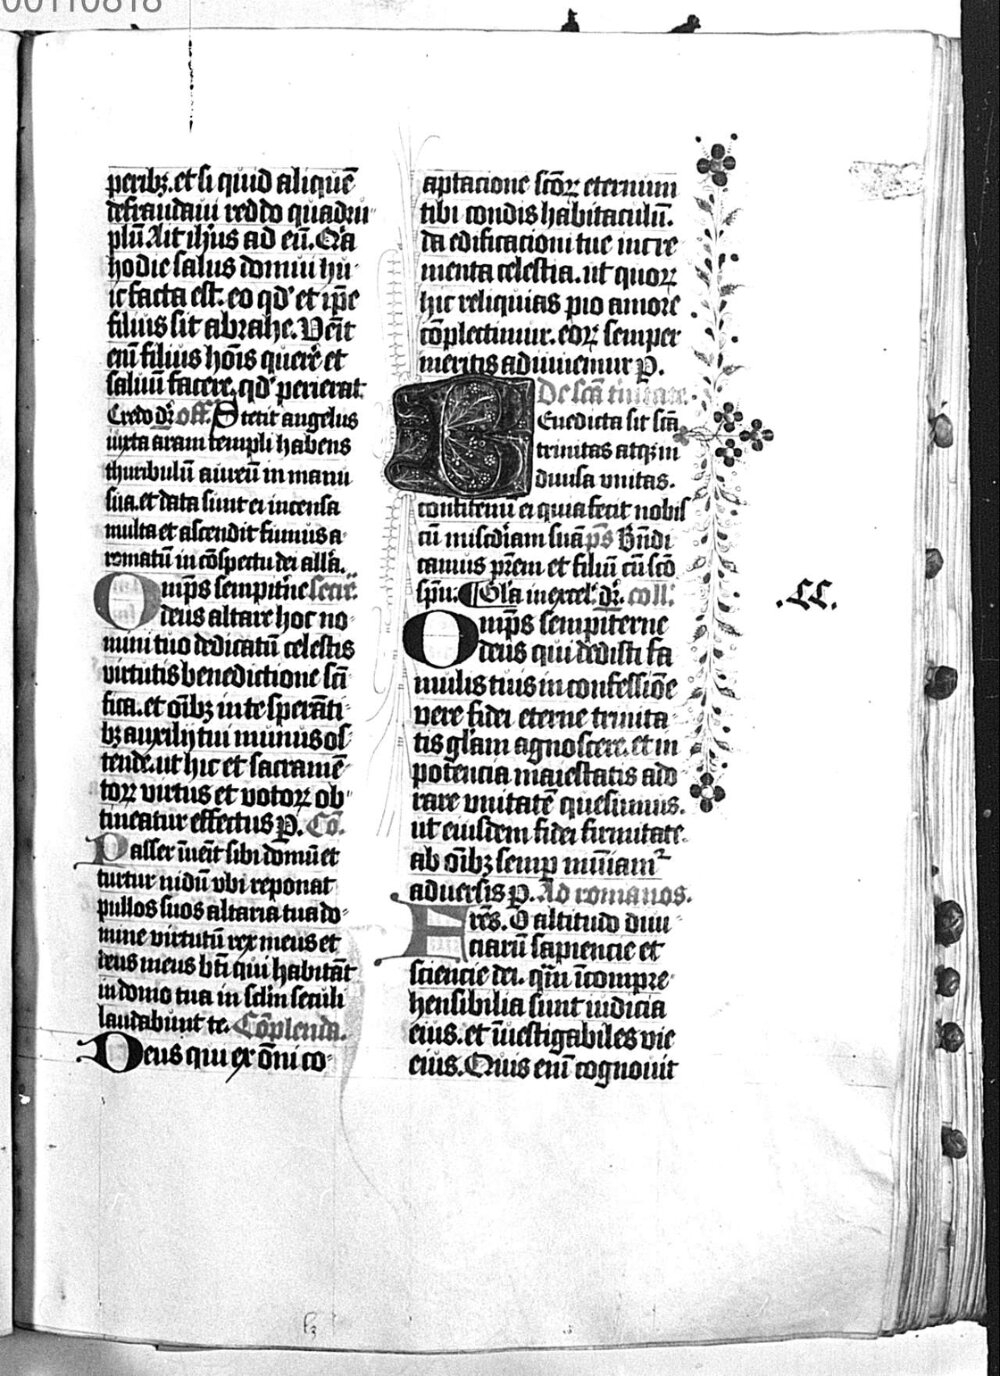 00110818
peribꝫ. et si quid aliquē
defraudaui reddo quadru
plū. Ait ihs̄us ad eū. Q̇a
hodie salus domui hu
ic facta est: eo qd̕ et ip̄e
filius sit abrahe. Venit
em̄ filius hoīs querē et
saluū facere. qd̕ perierat
Credo dr̄. off. Stetit angelus
iuxta aram templi habens
thuribulū aureū in manu
sua. et data sunt ei incensa
multa et ascendit fumus a
romatū in cōspectu dei all̄a.
Om̄ps sempit̄ne secrē.
deus altare hoc no
mini tuo dedicatū celestis
virtutis benedictione scī
fica. et oībꝫ in te sperāti
bꝫ auxilij tui munus os
tende. ut hic et sacramē
toꝝ virtus et votoꝝ ob
tineatur effectus p. Cō.
Passer īuēit sibi domū et
turtur nidū vbi reponat
pullos suos altaria tua do
mine virtutū rex meus et
deus meus bt̄i qui habitāt
in domo tua in sclm̄ seculi
laudabunt te. Cōplenda.
Deus qui ex ōni co
aptacione sc̄oꝝ eternum
tibi condis habitaculū.
da edificacioni tue incre
menta celestia. ut quoꝝ
hic reliquias pio amore
cōplectimur. eoꝝ semper
meritis adiuuemur p.
De scā trinitate.
Benedicta sit scā
trinitas atqꝫ in
diuisa vnitas.
confitemī ei quia fecit nobis
cū misc̄diam suā ps Bn̄di
camus prēm et filiū cū scō
spū. Gl̄a in excel̄. dr̄. coll.
Om̄ps sempiterne
deus qui dedisti fa
mulis tuis in confessiōe
vere fidei eterne trinita
tis gl̄am agnoscere. et in
potencia maiestatis ado
rare vnitatē quesumus.
ut eiusdem fidei firmitate
ab oībꝫ semp̄ muniamr̄
aduersis p. Ad romanos.
Frēs. O altitudo diui
ciarū sapiencie et
sciencie dei. qm̄ īcompre
hensibilia sunt iudicia
eius. et īuestigabiles vie
eius. Quis em̄ cognouit